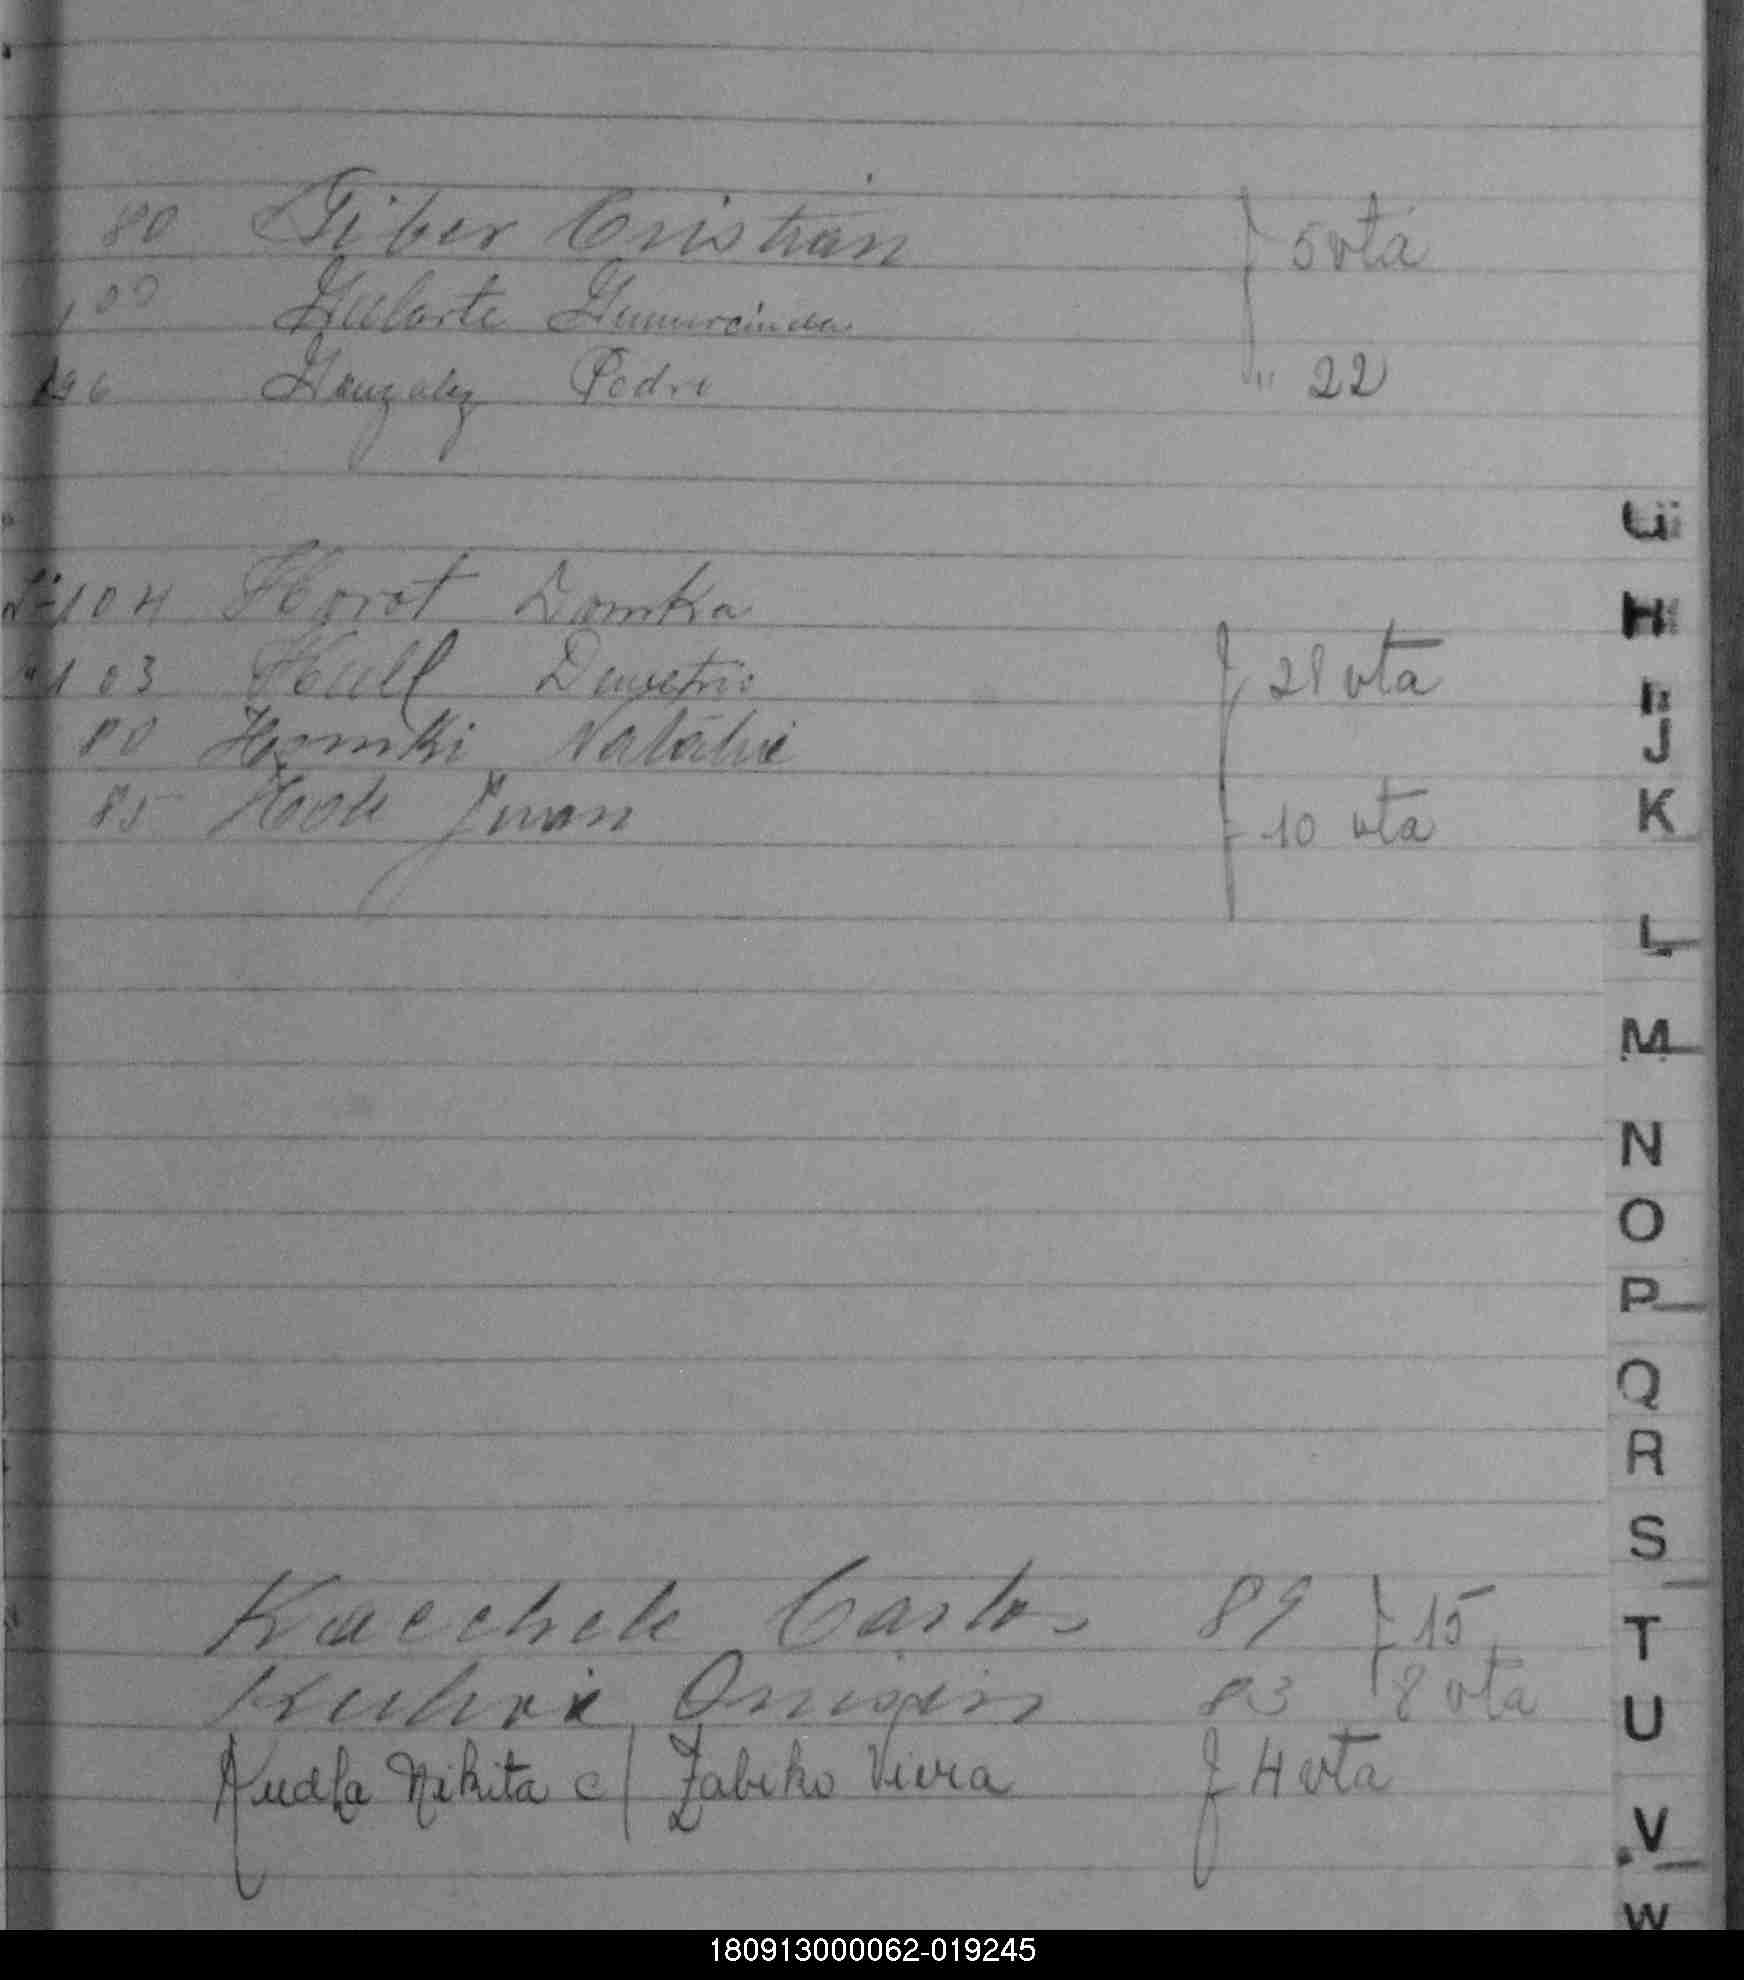 80 Giber Cristian f 5 vta
100 Gularte Gumercinda
196 Gonzalez Pedro " 22
104 Horot Domka
103 Hull Demetrio f 28 vta
80 Homki Natalie
85 Hode Juan f 10 vta
Kaechele Carlos 89 f 15
Kuhri 83 f 8 vta
Kudla Nikita c/ Zabiko Viera f 4 vta
G
H
I
J
K
L
M
N
O
P
Q
R
S
T
U
V
W
180913000062-019245